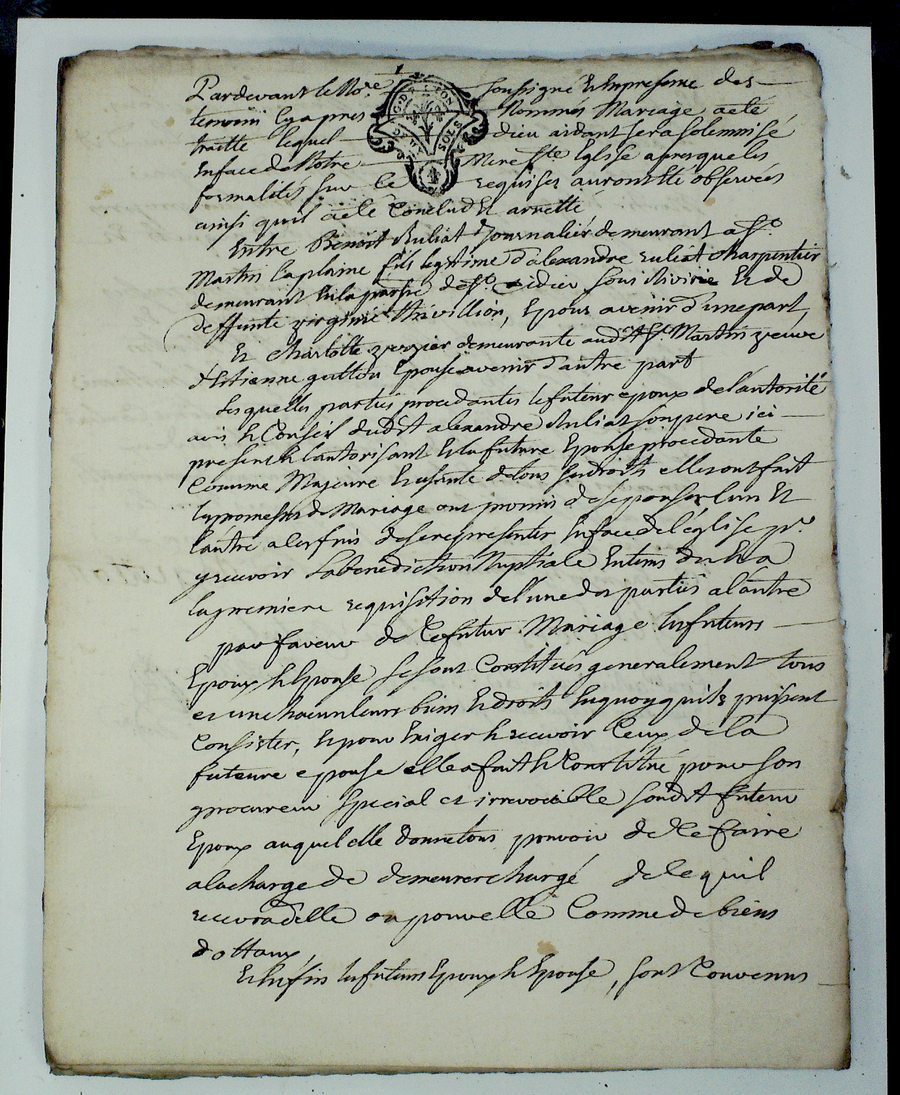 Pardevant le No.re soussigné et en presence des
temoins cy apres nommés Mariage a eté
traitté lequel dieu aidant sera solemnisé
en face de Notre Mere S.te Eglise apres que les
formalités sur ce requises auront eté observées
ainsi qu'il a eté Conclud et arretté
Entre Benoit Ruliat Journalier demeurant a S.t
Martin la plaine fils legitime d'alexandre ruliat charpentier
demeurant en la parroisse de S.t sous et de
deffunte virginie, Epoux avenir d'une part
Et charlotte demeurante aud.t S.t Martin veuve
d'Etienne guttou Epouse avenir d'autre part
Lesquelles parties procedantes le futeur epoux de l'autorité
avis et Conseil dudit alexandre Ruliat son pere ici
present et l'autorisant et la future Epouse procedante
Comme Majeure et usante de tous ses droits elles ont fait
les promesses de Mariage ont promis de s'epouser l'un et
l'autre a les fins de se representer en face de l'église p.r
y recevoir La benediction Nuptiale en tems du et a
la premiere requisition de l'une des parties a l'autre
par faveur de Ce futur Mariage les futeurs
Epoux et Epouse se sont Constitués generalement tous
et un chacun leurs biens et droits en quoy qu'ils puissent
Consister, et pour Exiger et recevoir Ceux de la
future epouse elle a fait et Constitué pour son
procureur special et irrevocable sondit futeur
Epoux auquel elle donne tous pouvoir de Ce faire
a la charge de demeurer chargé de Ce quil
recevra d'elle ou pour elle Comme de biens
dottaux
Et enfin les futeurs Epoux et Epouse, sont Convenus